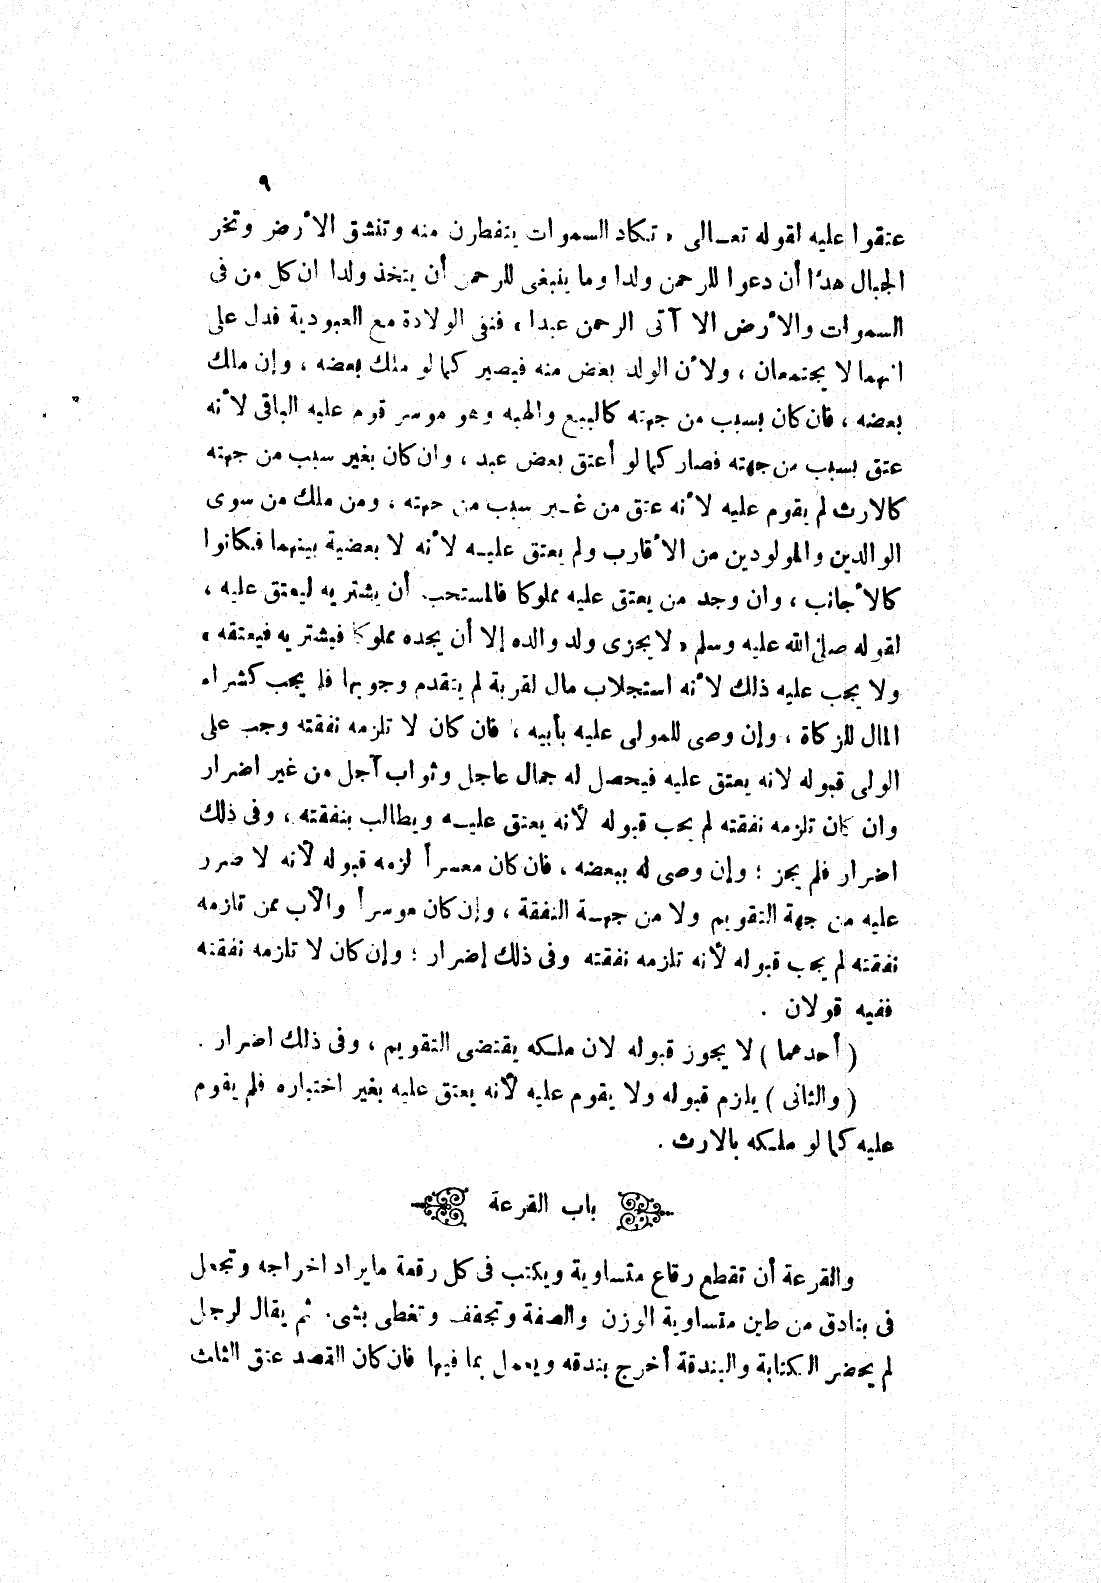 ٩
عتقوا عليه لقوله تعـالى « تكاد السموات يتفطرن منه وتنشق الأرض وتخر
الجبال هدًا أن دعوا للرحمن ولدا وما ينبغى للرحمن أن يتخذ ولدا ان كل من فى
السموات والأرض الا آتى الرحمن عبدا » فنفى الولادة مع العبودية فدل على
انهما لا يجتمعان ، ولأن الولد بعض منه فيصير كما لو ملك بعضه ، وإن ملك
بعضه ، فان كان بسبب من جهته كالبيع والهبه وهو موسر قوم عليه الباقى لأنه
عتق بسبب من جهته فصار كما لو أعتق بعض عبد ، وان كان بغير سبب من جهته
كالارث لم يقوم عليه لأنه عتق من غـير سبب من جهته ، ومن ملك من سوى
الوالدين والمولودين من الأقارب ولم يعتق عليـه لأنه لا بعضية بينهما فكانوا
كالأجانب ، وان وجد من يعتق عليه مملوكا فالمستحب أن يشتريه ليعتق عليه ،
لقوله صلى الله عليه وسلم « لا يجزى ولد والده إلا أن يجده مملوكا فيشتريه فيعتقه »
ولا يجب عليه ذلك لأنه استجلاب مال لقربة لم يتقدم وجوبها فلم يجب كشراء
المال للزكاة ، وإن وصى للمولى عليه بأبيه ، فان كان لا تلزمه نفقته وجب على
الولى قبوله لانه يعتق عليه فيحصل له جمال عاجل وثواب آجل من غير اضرار
وان كان تلزمه نفقته لم يجب قبوله لأنه يعتق عليـه ويطالب بنفقته ، وفى ذلك
اضرار فلم يجز ؛ وإن وصى له ببعضه ، فان كان معسراً لزمه قبوله لأنه لا ضرر
عليه من جهة التقويم ولا من جهـة النفقة ، وإن كان موسراً والأب ممن تلزمه
نفقته لم يجب قبوله لأنه تلزمه نفقته وفى ذلك إضرار ؛ وإن كان لا تلزمه نفقته
ففيه قولان .
( أحدهما ) لا يجوز قبوله لان ملكه يقتضى التقويم ، وفى ذلك اضرار .
( والثانى ) يلزم قبوله ولا يقوم عليه لأنه يعتق عليه بغير اختياره فلم يقوم
عليه كما لو ملكه بالارث .
باب القرعة
والقرعة أن تقطع رقاع متساوية ويكتب فى كل رقعة ما يراد اخراجه وتجعل
فى بنادق من طين متساوية الوزن والصفة وتجفف وتغطى بشىء ثم يقال لرجل
لم يحضر الكتابة والبندقة أخرج بندقه ويعمل بما فيها فان كان القصد عتق الثلث